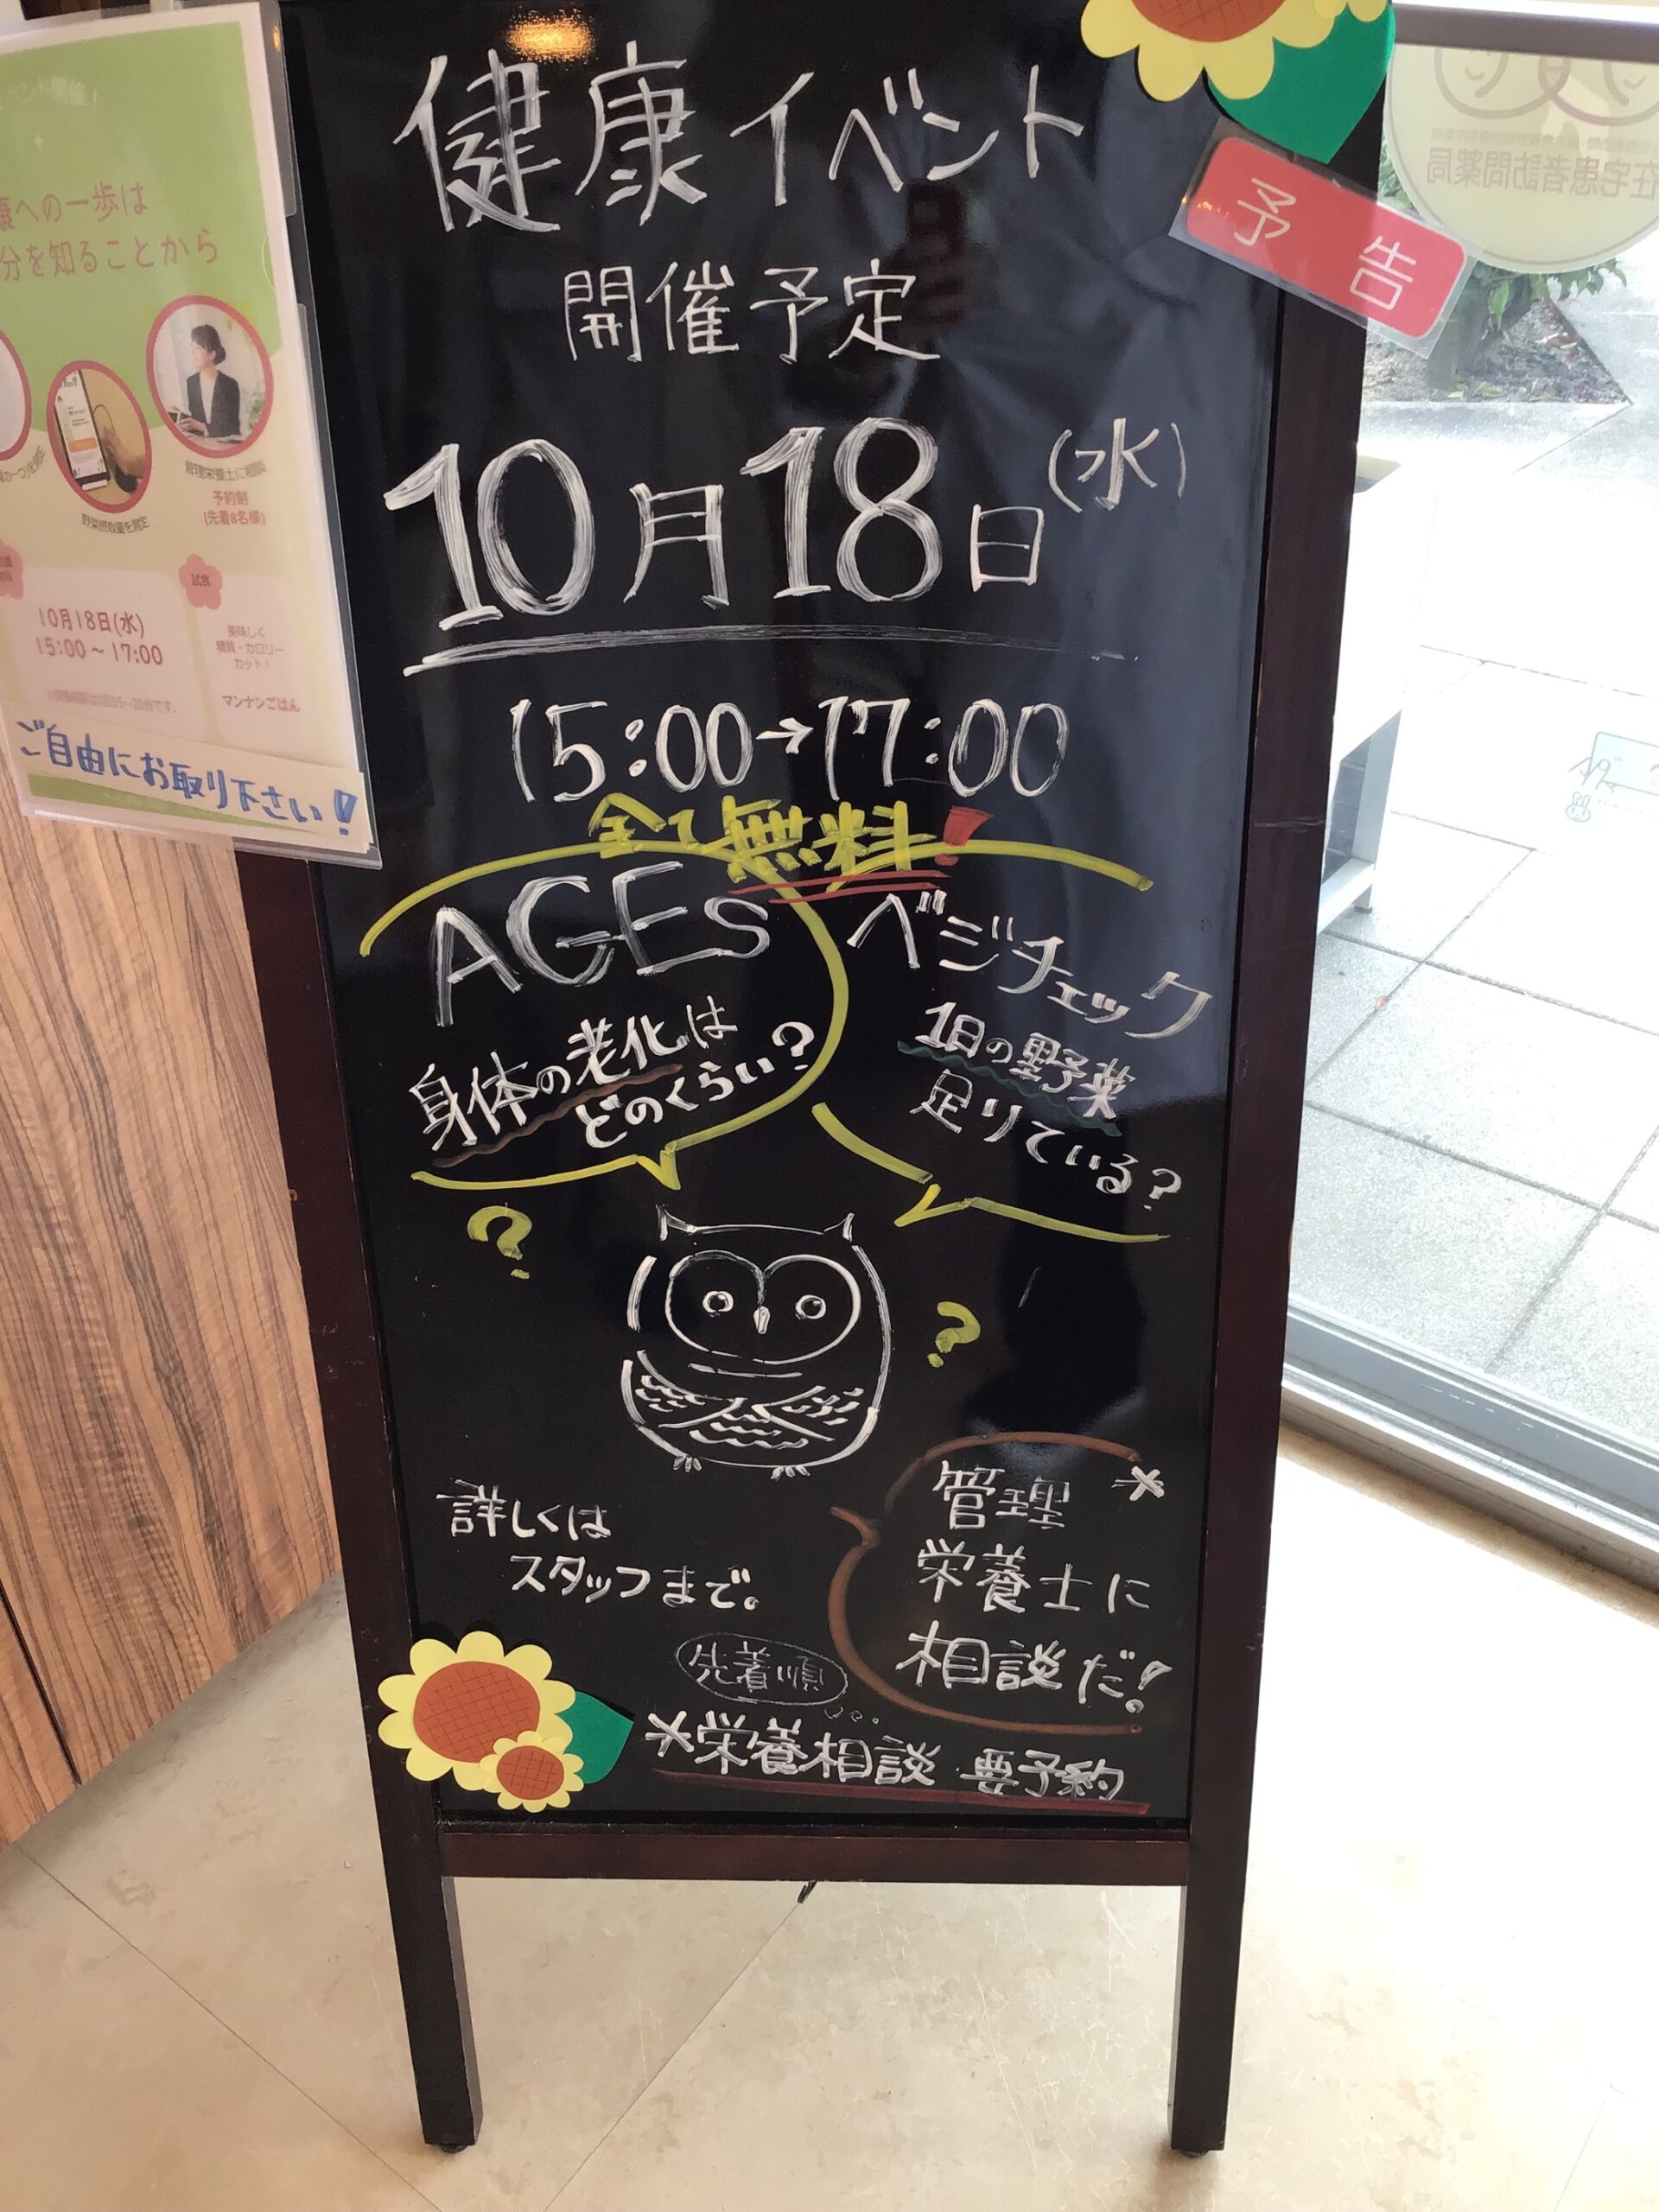 健康イベント
予告
開催予定
10月18日(水)
15:00→17:00
全て無料!
AGEs
身体の老化は
どのくらい?
ベジチェック
1日の野菜
足りている?
?
?
詳しくは
スタッフまで。
管理*
栄養士に
相談だ!
先着順
*栄養相談 要予約
康への一歩は
分を知ることから
管理栄養士に相談
予約制
(先着8名様)
野菜摂取量を測定
10月18日(水)
15:00~17:00
試食
美味しく
糖質・カロリー
カット!
マンナンごはん
ご自由にお取り下さい!
在宅患者訪問薬局